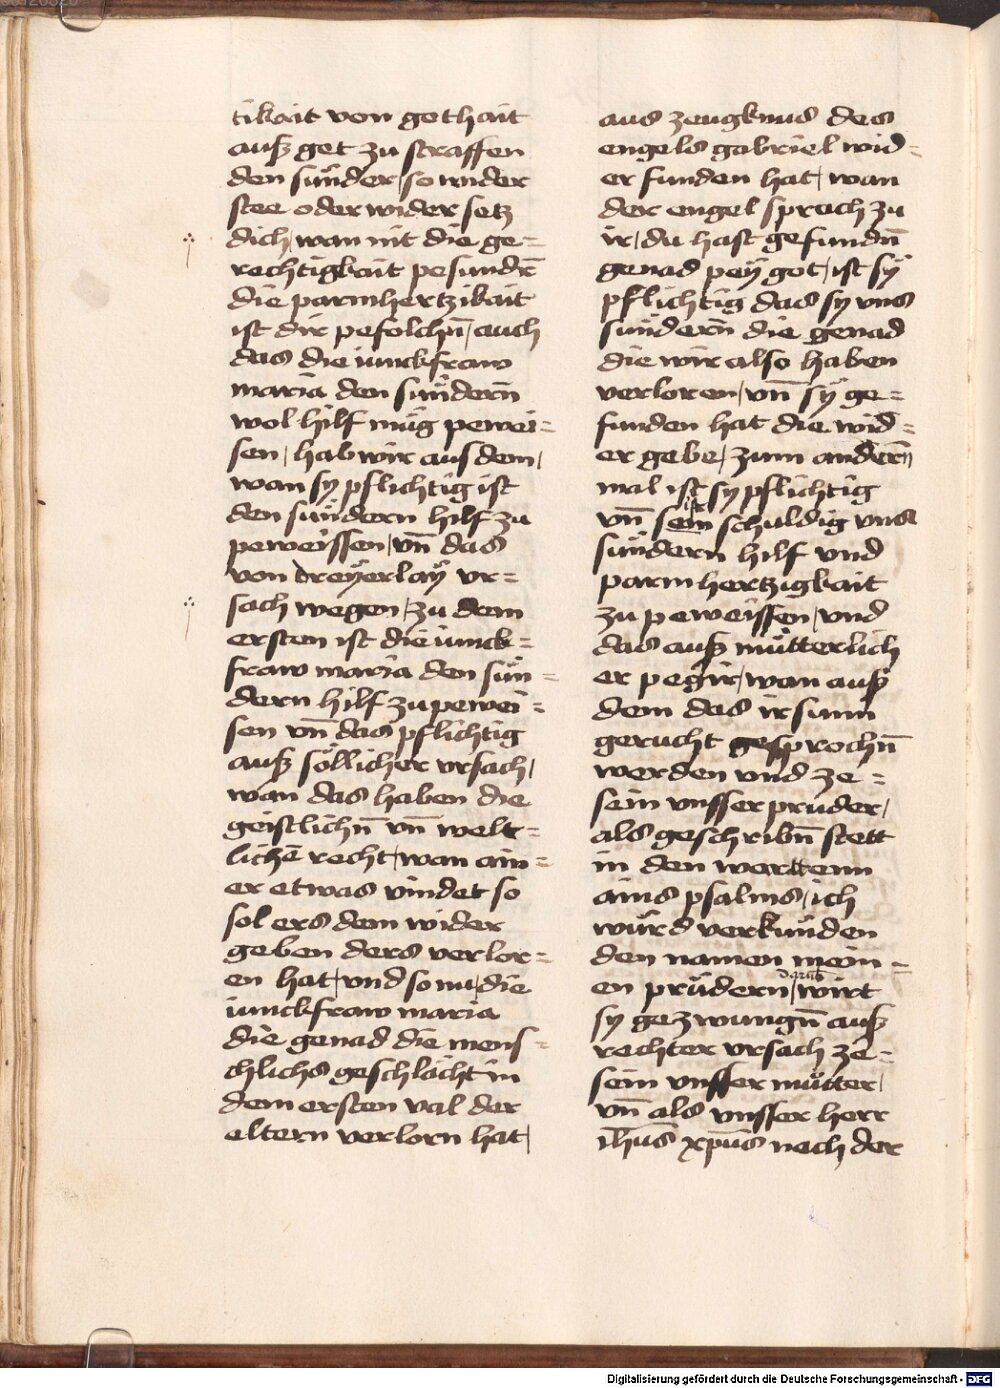 tikait von gothait
auß get zu straffen
den sünder / so wider
stee oder wider setz
dich / wan nit die ge=
rechtigkait pesundr̄
die parmhertzikait
ist dir pefolchn̄ / auch
das die iunckfraw
maria den sündern̄
wol hilf müg pewei=
sen / hab wir aus dem /
wan sy pflichtig ist
den sündern hilf zu
peweissen / vn̄ das
von dreÿerlaÿ vr=
sach wegen / zu dem
ersten ist die iunck=
fraw maria den sün=
dern hilf zu pewei=
sen vn̄ das pflichtig
auß söllicher vrsach /
wan das haben die
geistlichn̄ vn̄ welt=
lichē recht / wan ain=
er etwas vindet so
sol ers dem wider
geben ders verlor=
en hat / vnd so nu / die
iunckfraw maria
die genad die mens=
chlichs geschlächt in
dem ersten val der
eltern verlorn hat /
aus zeugknus des
engels gabriel wid=
er funden hat / wan
der engel sprach zu
ir / du hast gefundn̄
genad peÿ got / ist sÿ
pflichtig das sy vns
sündern̄ die genad
die wir also haben
verloren / vn̄ sÿ ge=
funden hat die wid=
er gebe / zum andern̄
mal ist sy pflichtig
vn̄ sein schuldig vns
sündern hilf vnd
parmhertzigkait
zu peweissen / vnd
das auß mütterlich
er pegir / wan auß
dem das ir sunn
gerucht gesprochn̄
werden vnd ze=
sein vnsser prüder /
als geschribn̄ stett
in den worttenn
ains psalms / ich
würd verkünden
den namen mein=
en prüdern / darumb wirt
sy gezwungn̄ auß
rechter vrsach ze=
sein vnsser mütter /
vn̄ als vnsser herr
ih̄us xp̄us nach der
Digitalisierung gefördert durch die Deutsche Forschungsgemeinschaft - DFG